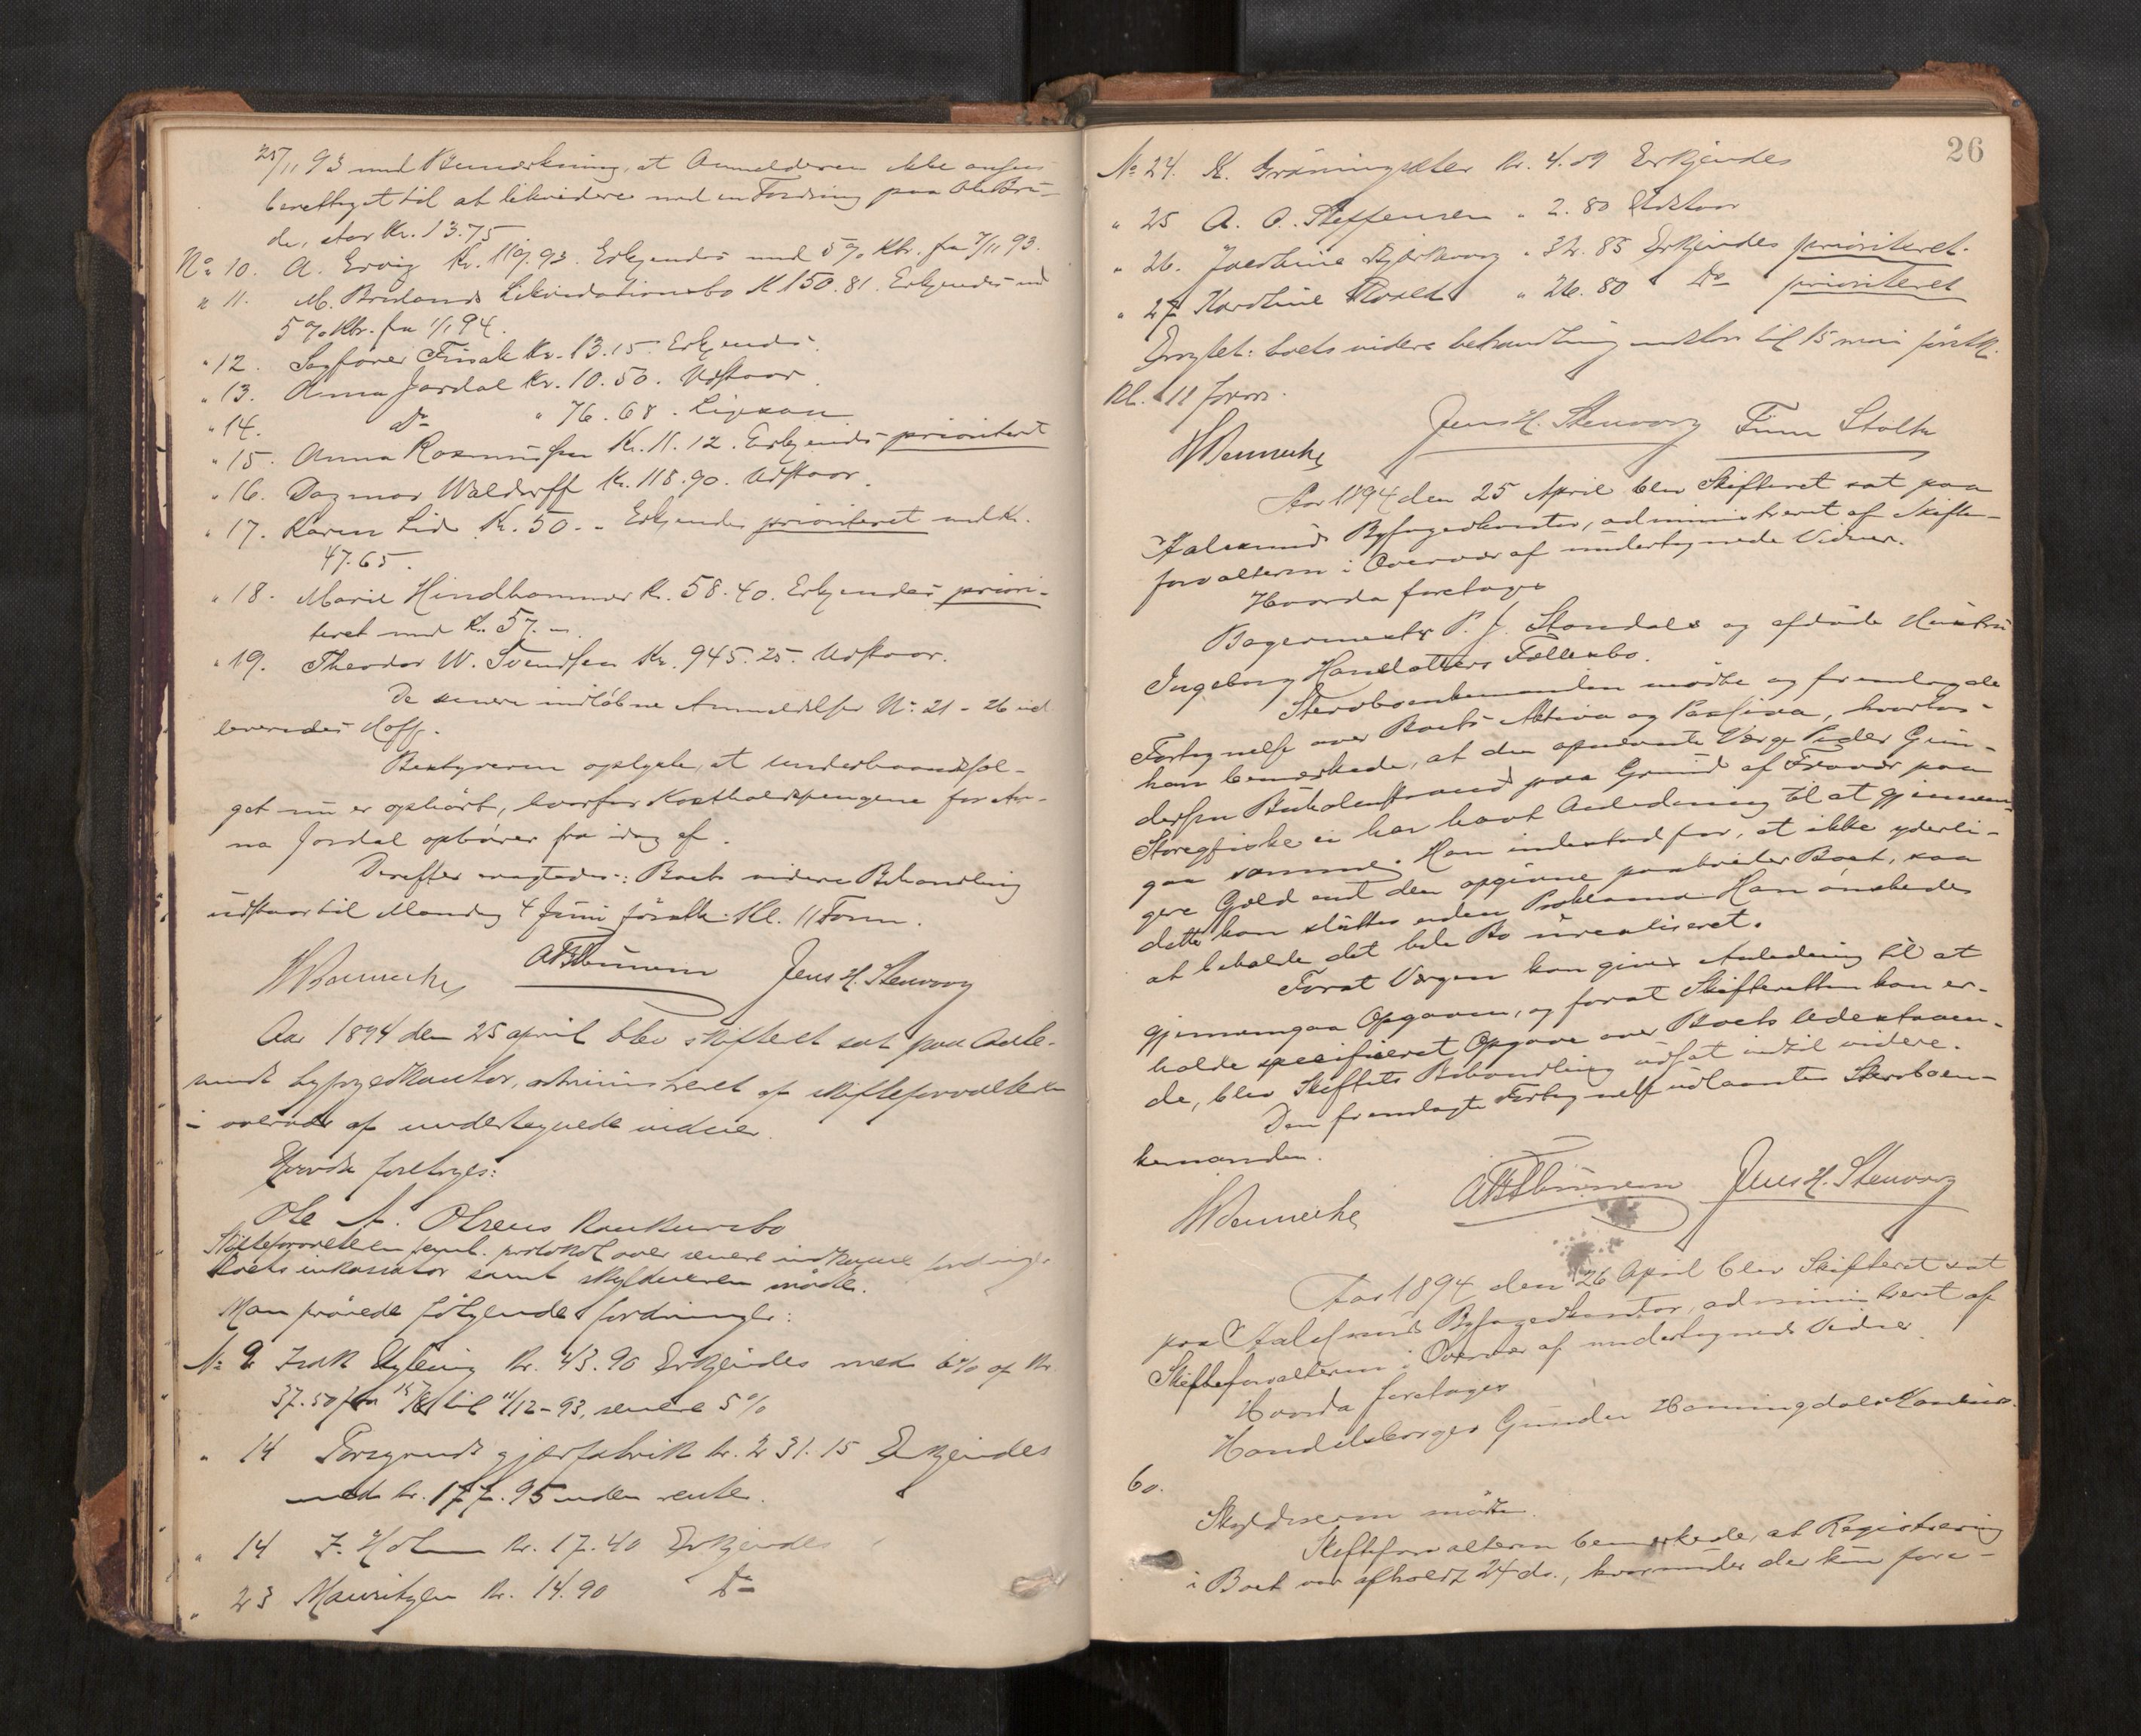 25/11 93 med Bemærkning, at Anmelderen ikke ansees
berettiget til at likvidere med en Fordring paa Ole Bru-
de, stor Kr. 13.75
No 10. A. Ervig Kr. 119.93. Erkjendes med 5 % Rtr. fra 7/11 93.
" 11. M. Brulands Likvidationsbo K 150.81. Erkjendes med
5 % Rtr. fra 1/1 94.
" 12. Sagfører Kr. 13.15. Erkjendes.
" 13. Anna Jordal Kr. 10.50. Udstaar.
" 14. do " 76.68. Ligesaa
" 15. Anna Rasmussen Kr. 11.12. Erkjendes prioriteret
" 16. Dagmar Waldorff Kr. 118.90. Udstaar.
" 17. Karen Lid K. 50.- Erkjendes prioriteret med Kr.
47.65.
" 18. Marie Hindhammer Kr. 58.40. Erkjendes priori-
teret med Kr. 57.-
" 19. Theodor W. Svendsen Kr. 945.25. Udstaar.
De senere indløbne Anmeldelser No 21 - 26 ud
leveredes Hoff.
Bestyreren oplyste, at Underhaandssal-
get nu er ophørt, hvorfor Kostholdspengene for An-
na Jordal ophører fra idag af.
Derefter eragtedes: Boets videre Behandling
udstaar til Mandag 4 Juni førstk. Kl. 11 Form.
Jens H. Stenvaag
Aar 1894 den 25 april blev skifteret sat paa Aale-
sunds byfogedkontor, administreret af skifteforvalteren
i overvær af undertegnede vidner.
Hvorda foretoges:
Ole A. Olsens Konkursbo
Skifteforvalteren feml. protokol over senere indkomne fordringer
Boets inkassator samt skyldneren mødte.
Man prøvede følgende fordringer:
No 9 Kr. 43.90 Erkjendes med 6 % af Kr.
37.50 fra til 11/12-93, senere 5 %
" 14 Porsgrunds gjærfabrik kr. 231.15 Erkjendes
med kr. 177.95 uden rente.
" 14 J. Holm Kr. 17.40 Erkjendes
" 23 Mauritzen Kr. 14.90 do
26
No 24. K. Grønningsæter Kr. 4.09 Erkjendes
" 25 A. O. Steffensen " 2.80 Udstaar
" 26. Josefine " 32.85 Erkjendes prioriteret.
" 27 Karoline " 26.80 do prioriteret
Eragtet: boets videre behandling udstaar til 15 mai førstk.
Kl. 11 form.
Jens H. Stenvaag Finn Stoltz
Aar 1894 den 25 April blev Skifteret sat paa
Aalesunds Byfogedkontor, administreret af Skifte-
forvalteren i Overvær af undertegnede Vidner.
Hvorda foretoges
Bagermester P. J. Standals og afdøde Hustru
Ingeborg Hansdatters Fællesbo.
Stervboenkemanden mødte og fremlagde
Fortegnelse over Boets Aktiva og Passiva, hvorhos
han bemærkede, at den opnævnte Værge Peder Gun-
dersen Buholmstrand paa Grund af Fravær paa
Storegfiske ei har havt Anledning til at gjennem-
gaa samme. Han indestod for, at ikke yderli-
gere Gjæld end den opgivne paahviler Boet, saa
dette kan sluttes uden Proklama. Han ønskede
at beholde det hele Bo urealiseret.
Forat Værgen kan gives Anledning til at
gjennemgaa Opgaven, og forat Skifteretten kan er-
holde specificeret Opgave over Boets Udestaaen-
de, blev Skiftets Behandling udsat indtil videre.
Den fremlagte Fortegnelse udlaantes Stervboen-
kemanden.
Jens H. Stenvaag
Aar 1894 den 26 April blev Skifteret sat
paa Aalesunds Byfogedkontor, administreret af
Skifteforvalteren i Overvær af undertegnede Vidner
Hvorda foretoges
Handelsborger Gunder Honningdals Konkurs-
bo.
Skyldneren mødte.
Skifteforvalteren bemærkede, at Registrering
i Boet var afholdt 24 ds., hvorunder der kun fore-